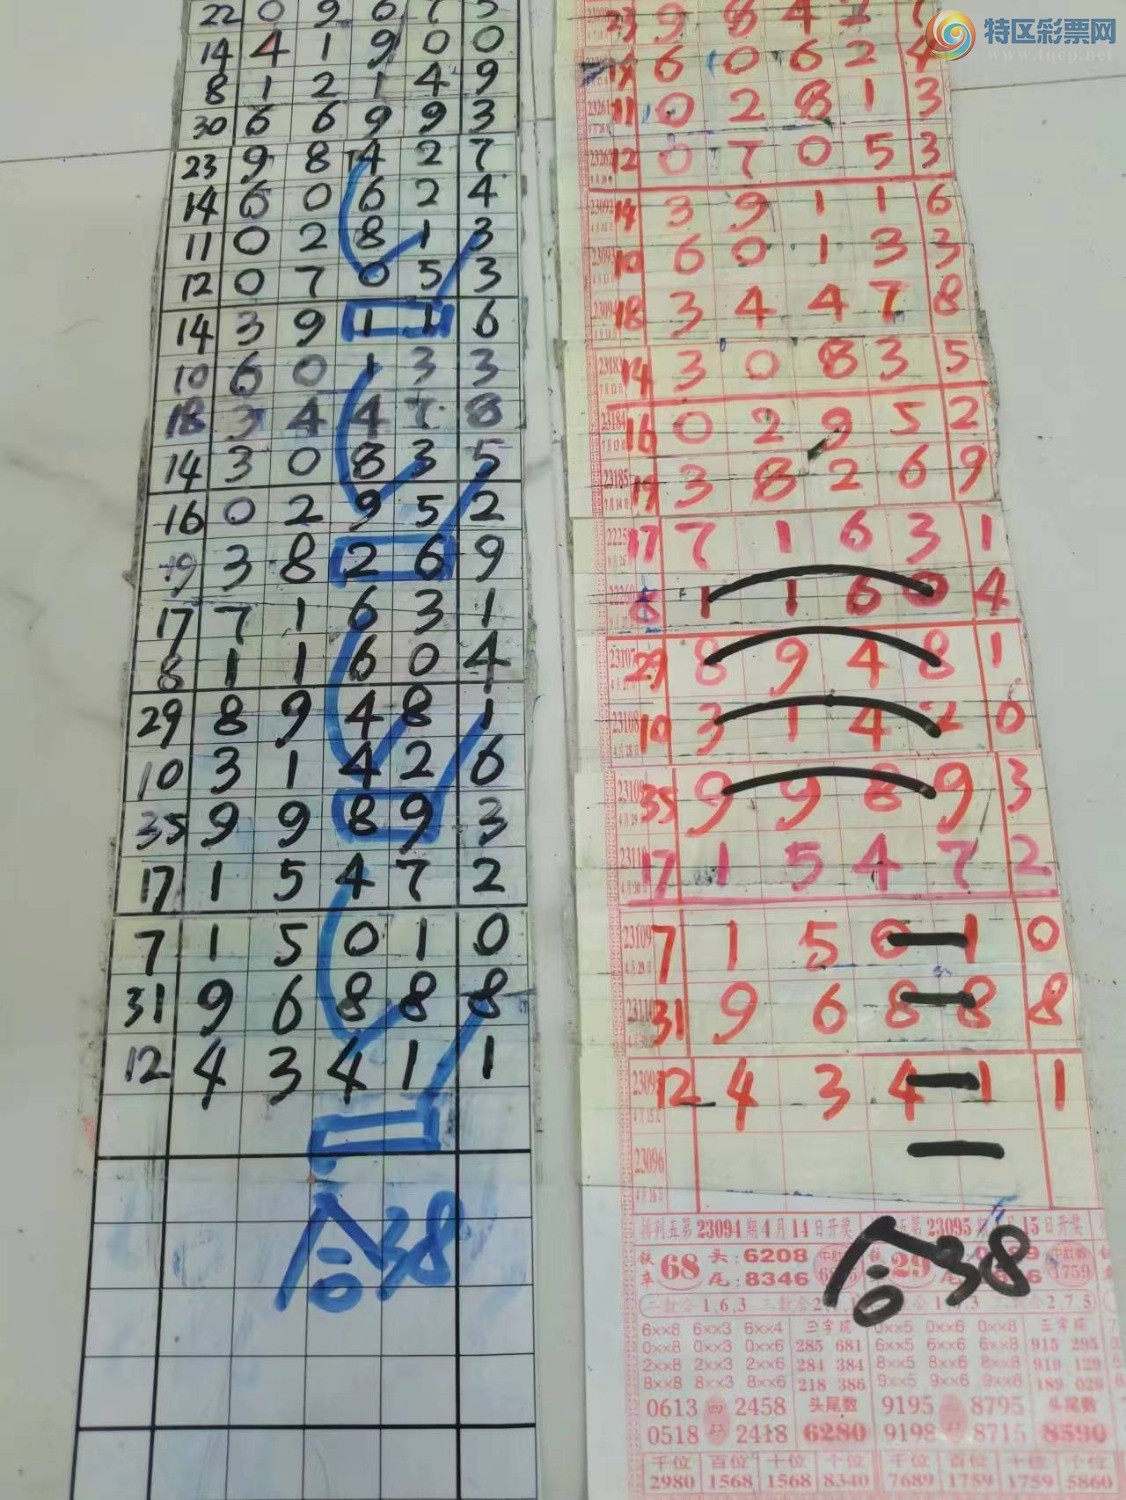 22 0 9 6 7 5
14 4 1 9 0 0
8 1 2 1 4 9
30 6 6 9 9 3
23 9 8 4 2 7
14 6 0 6 2 4
11 0 2 8 1 3
12 0 7 0 5 3
14 3 9 1 1 6
10 6 0 1 3 3
18 3 4 4 7 8
14 3 0 8 3 5
16 0 2 9 5 2
19 3 8 2 6 9
17 7 1 6 3 1
8 1 1 6 0 4
29 8 9 4 8 1
10 3 1 4 2 6
35 9 9 8 9 3
17 1 5 4 7 2
7 1 5 0 1 0
31 9 6 8 8 8
12 4 3 4 1 1
合38
特区彩票网
www.tqcp.net
23 9 8 4 2 7
14 6 0 6 2 4
11 0 2 8 1 3
12 0 7 0 5 3
23092 14 3 9 1 1 6
23093 10 6 0 1 3 3
23094 18 3 4 4 7 8
23183 14 3 0 8 3 5
23184 16 0 2 9 5 2
23185 19 3 8 2 6 9
17 7 1 6 3 1
8 1 1 6 0 4
23107 29 8 9 4 8 1
23108 10 3 1 4 2 6
23109 35 9 9 8 9 3
23110 17 1 5 4 7 2
23109 7 1 5 0 1 0
23110 31 9 6 8 8 8
12 4 3 4 1 1
23096
4月16日
排列五第23094期4月14日开奖
五第23095期 月15日开奖
铁卒 68 头:6208 尾:8346
29
1759
合38
二数合1,6,3
2,7,5
6xx8 6xx3 6xx4 三字现 0xx5 0xx6 0xx8 三字现
0xx8 0xx3 0xx6 285 681 6xx5 6xx6 6xx8 915 295
2xx8 2xx3 2xx6 284 384 8xx5 8xx6 8xx8 919 129
8xx8 8xx3 8xx6 218 386 9xx5 9xx6 9xx8 189 029
0613 四 2458 头尾数 9195 四 8795 头尾数
0518 码 2418 6280 9198 码 8715 8590
千位 百位 十位 个位 千位 百位 十位 个位
2980 1568 1568 8340 7689 1759 1759 5860